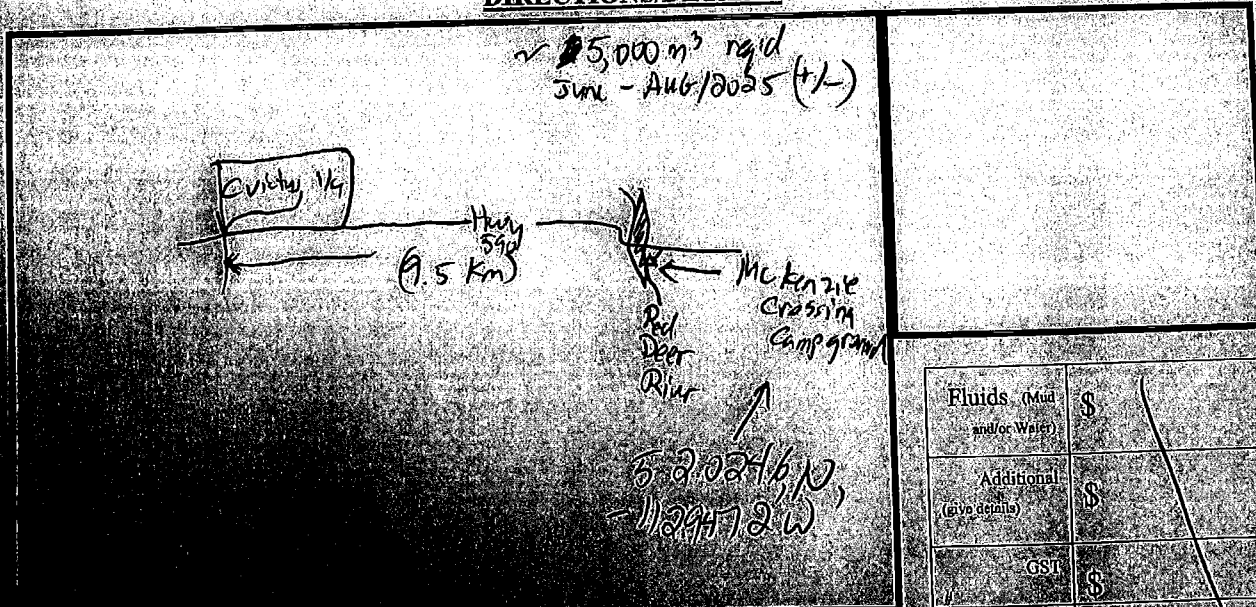 ~ 5,000 m³ req'd
June - AUG/2025 (+/-)
1/4
Hwy
590
(9.5 Km)
McKenzie
Crossing
Campground
Red
Deer
River
52.0246, N,
-112.9472 W
Fluids (Mud
and/or Water)
$
Additional
(give details)
$
GST
$